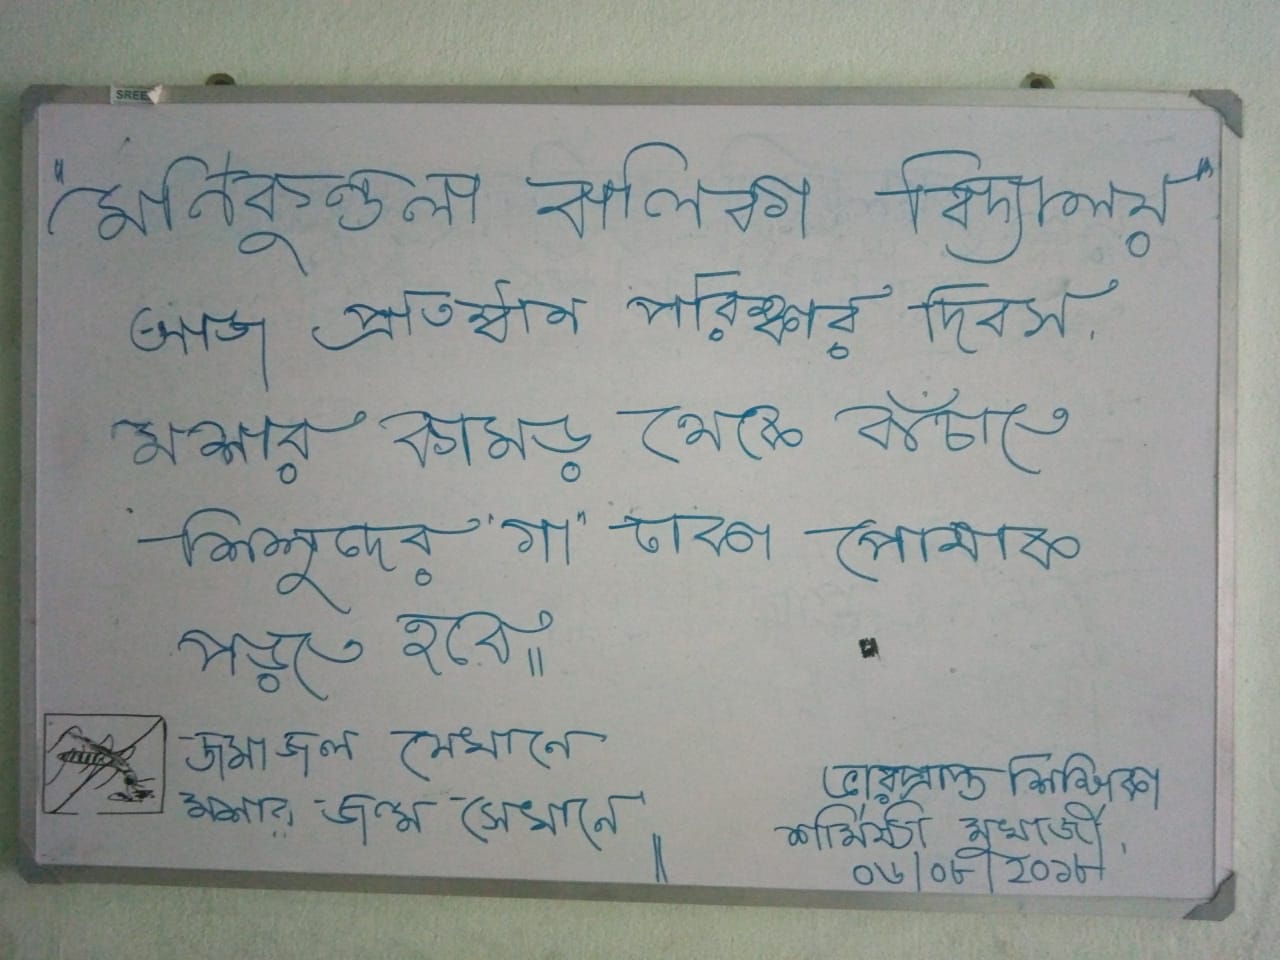 SREE
"মনিকুন্তলা বালিকা বিদ্যালয়"
আজ প্রতিষ্ঠান পরিষ্কার দিবস.
মশার কামড় থেকে বাঁচাতে
শিশুদের "গা" ঢাকা পোষাক
পড়তে হবে॥
জমাজল যেখানে
মশার জন্ম সেখানে॥
ভারপ্রাপ্ত শিক্ষিকা
শর্মিষ্ঠা মুখার্জী,
০৬/০৮/২০১৮